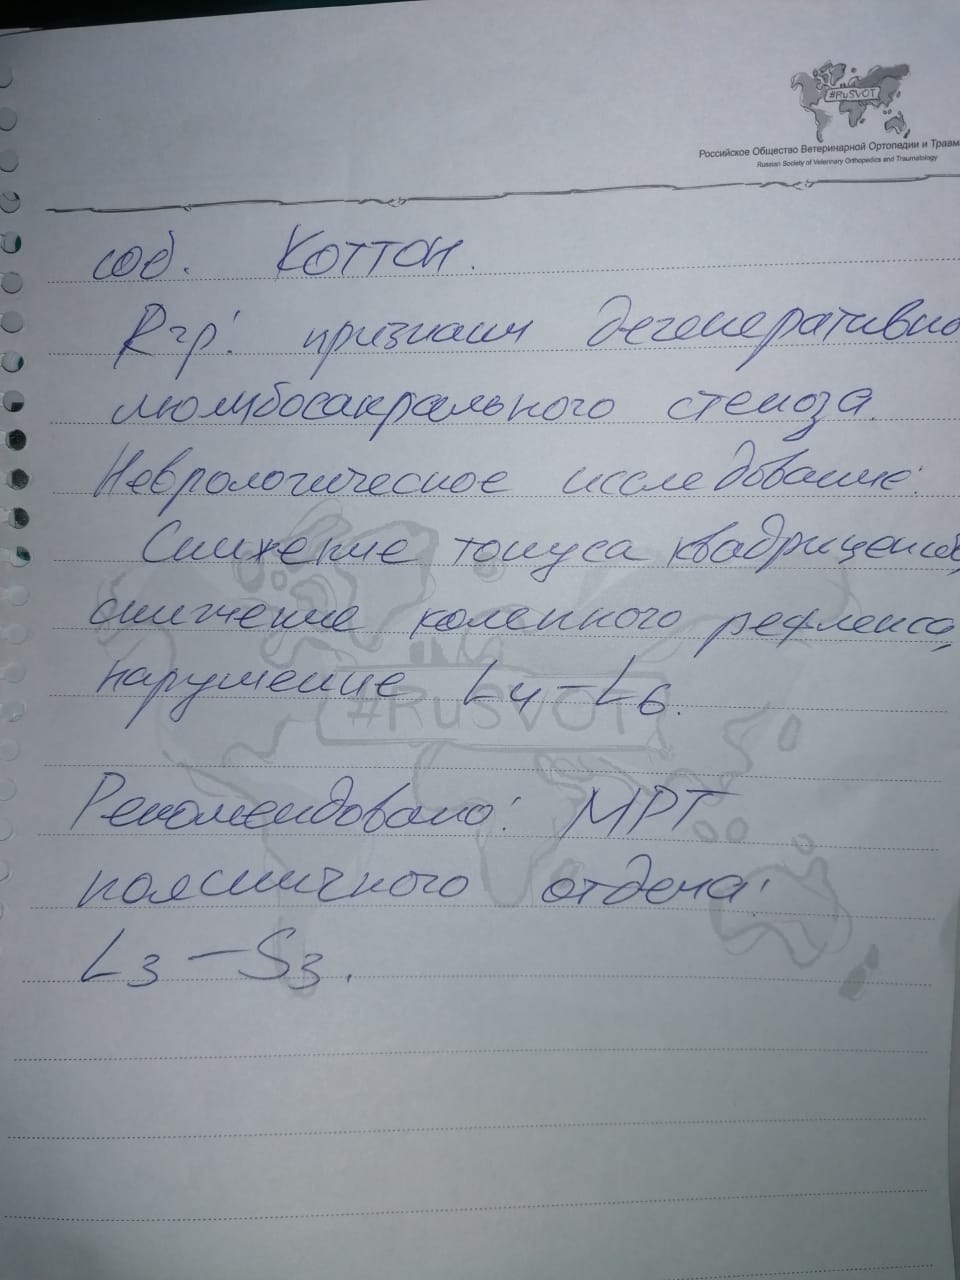 #RuSVOT
Российское Общество Ветеринарной Ортопедии и Травм
Russian Society of Veterinary Orthopedics and Traumatology
соб. Коттон.
Rгр: признаки дегенеративно
люмбосакрального стеноза.
Неврологическое исследование:
Снижение тонуса квадрицепсов,
снижение коленного рефлекса,
нарушение L4-L6.
#RuSVOT
Рекомендовано: МРТ
поясничного отдела:
L3-S3.